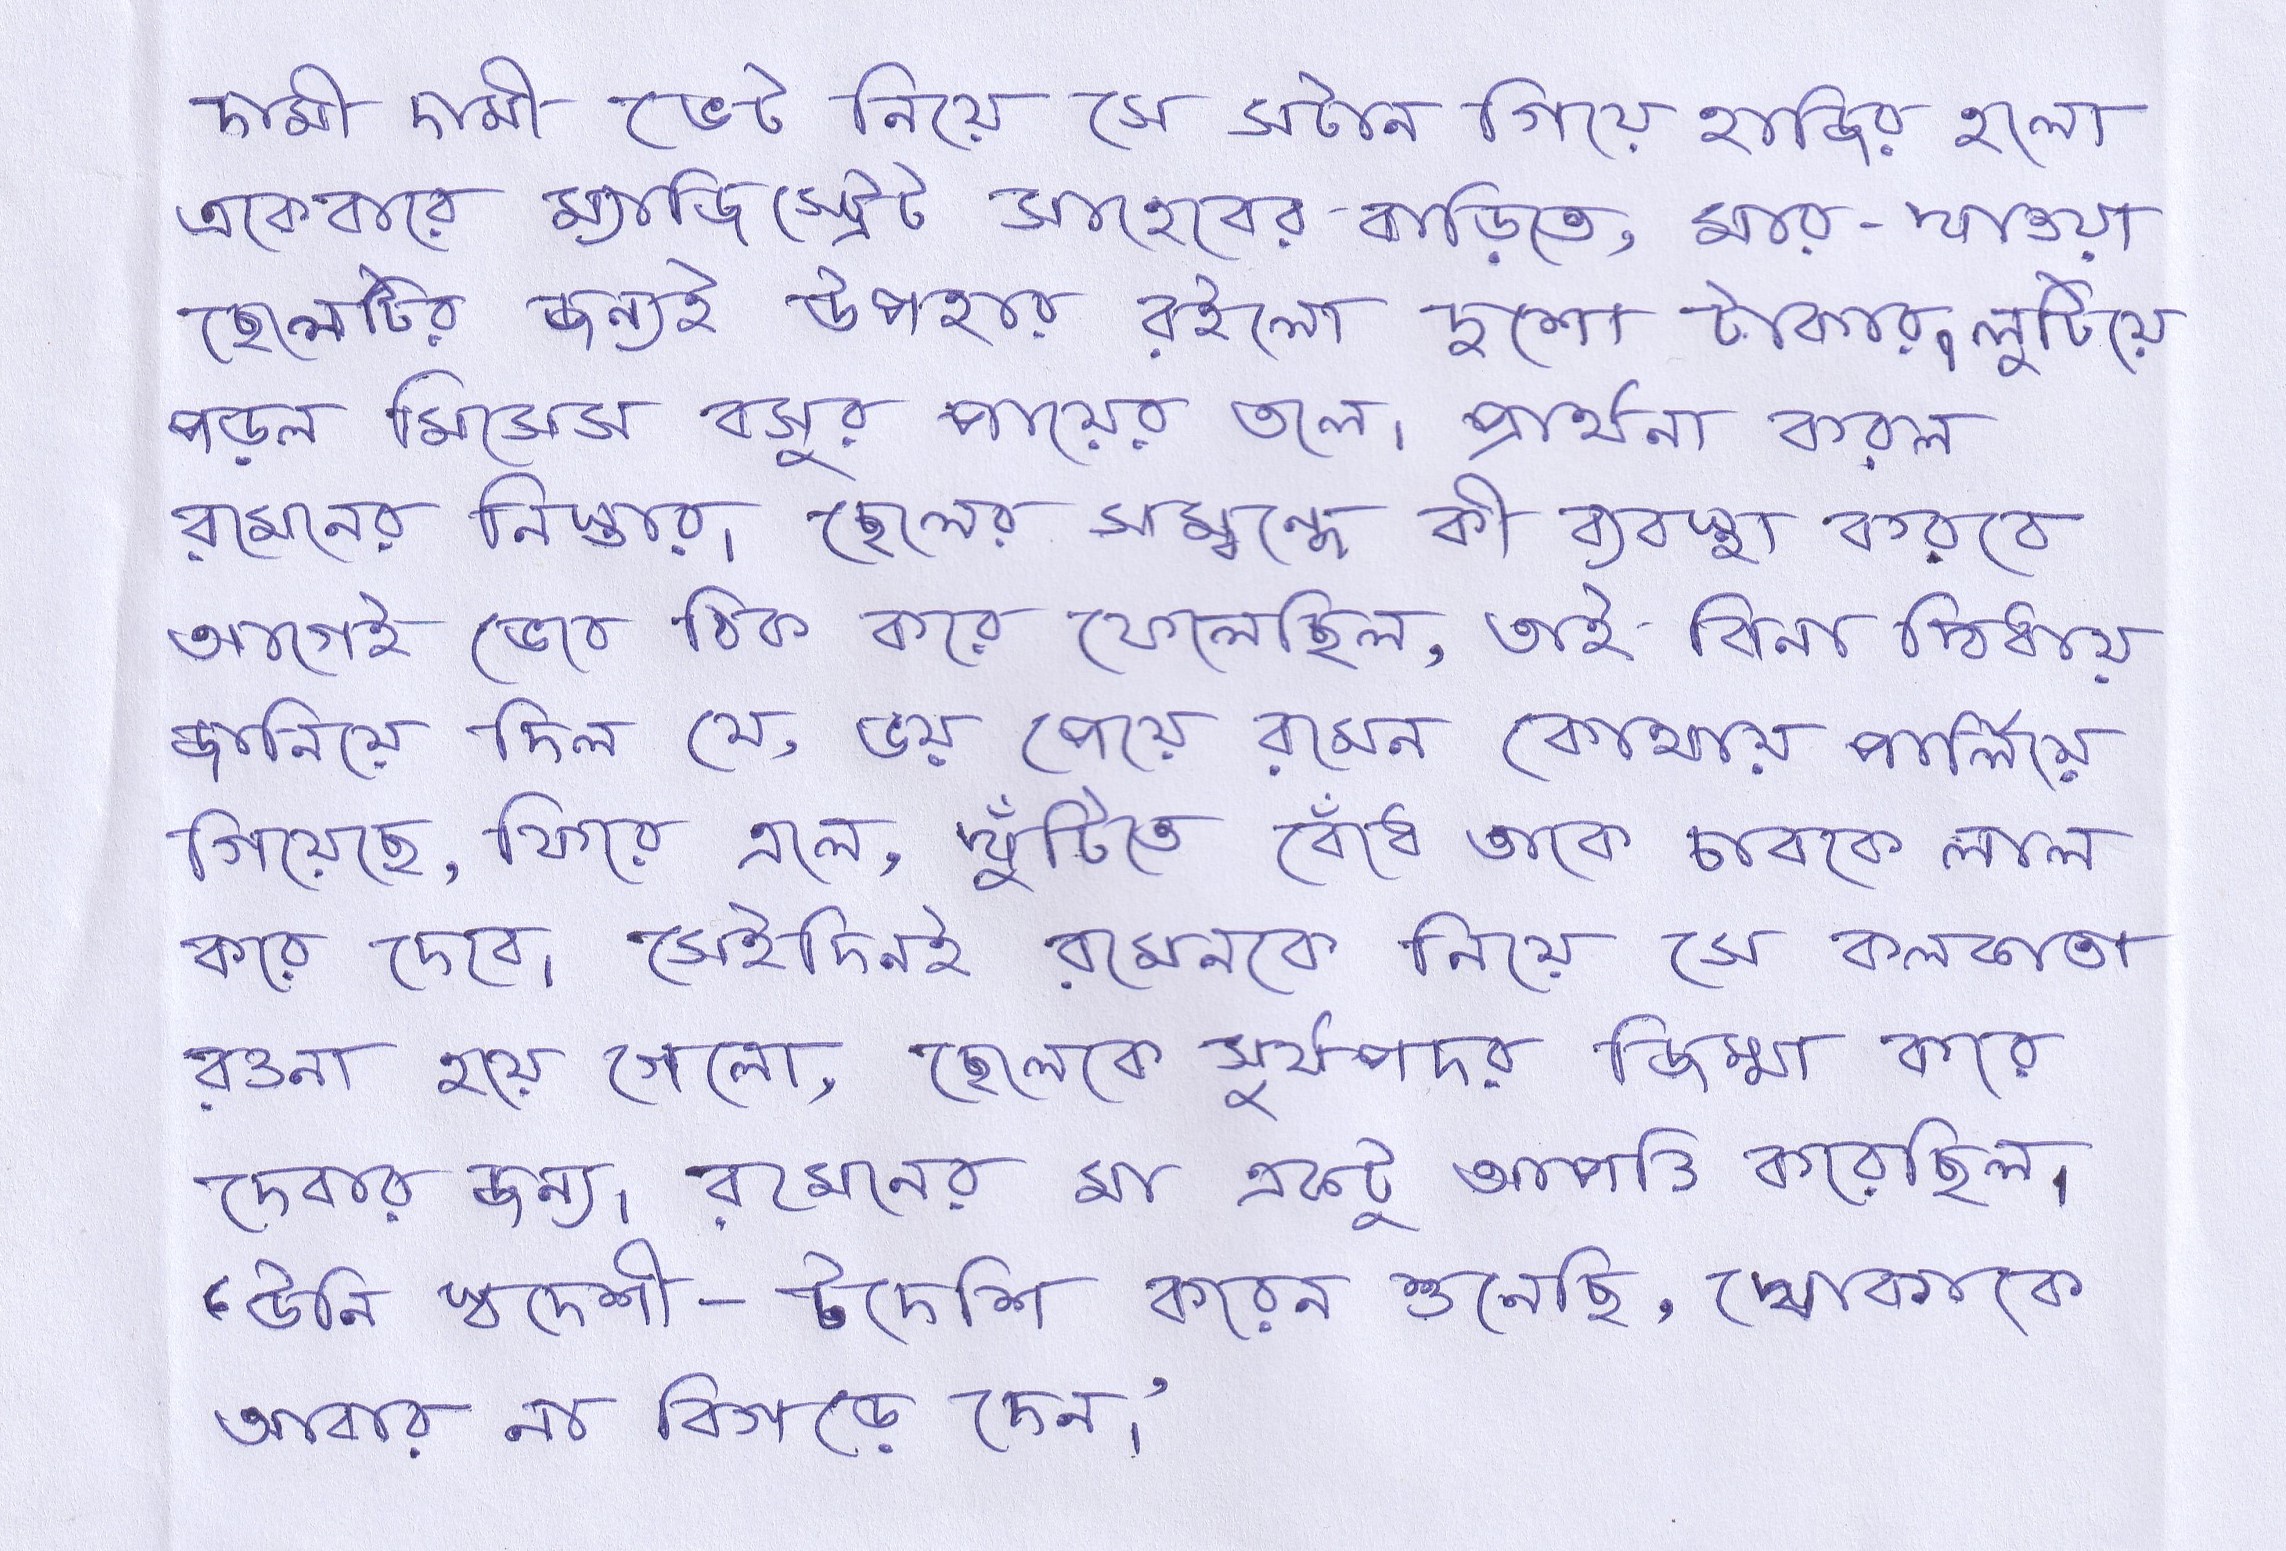 দামী দামী ভেট নিয়ে সে সটান গিয়ে হাজির হলো
একেবারে ম্যাজিস্ট্রেট সাহেবের বাড়িতে, মার-খাওয়া
ছেলেটির জন্যই উপহার রইলো দুশো টাকার। লুটিয়ে
পড়ল মিসেস বসুর পায়ের তলে। প্রার্থনা করল
রমেনের নিস্তার। ছেলের সম্বন্ধে কী ব্যবস্থা করবে
আগেই ভেবে ঠিক করে ফেলেছিল, তাই বিনা দ্বিধায়
জানিয়ে দিল যে, ভয় পেয়ে রমেন কোথায় পালিয়ে
গিয়েছে, ফিরে এলে, খুঁটিতে বেঁধে তাকে চাবকে লাল
করে দেবে। সেইদিনই রমেনকে নিয়ে সে কলকাতা
রওনা হয়ে গেলো, ছেলেকে সূর্যপদর জিম্মা করে
দেবার জন্য। রমেনের মা একটু আপত্তি করেছিল।
‘উনি স্বদেশী-টদেশি করেন শুনেছি, খোকাকে
আবার না বিগড়ে দেন।’